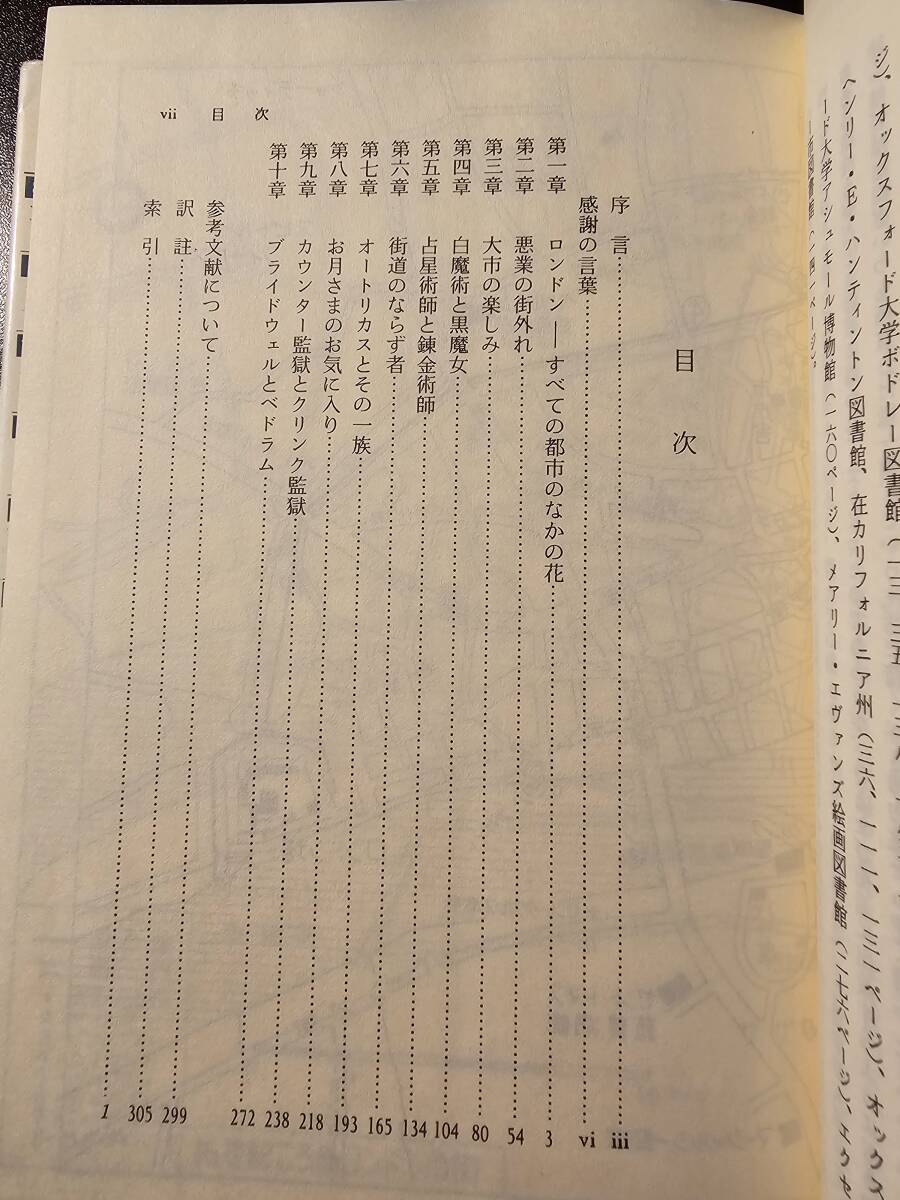 ジ）、オックスフォード大学ボドレー図書館（一三、三五、一三八、
ヘンリー・E・ハンティントン図書館、在カリフォルニア州（三六、一一一、一三一ページ）、オックス
ード大学アシュモール博物館（一六〇ページ）、メアリー・エヴァンズ絵画図書館（二七六ページ）、エクセ
ー市図書館（一四一ページ）。
vii 目 次
目 次
序 言 iii
感謝の言葉 vi
第一章 ロンドン――すべての都市のなかの花 3
第二章 悪業の街外れ 54
第三章 大市の楽しみ 80
第四章 白魔術と黒魔女 104
第五章 占星術師と錬金術師 134
第六章 街道のならず者 165
第七章 オートリカスとその一族 193
第八章 お月さまのお気に入り 218
第九章 カウンター監獄とクリンク監獄 238
第十章 ブライドウェルとベドラム 272
参考文献について 299
訳 註 305
索 引 1